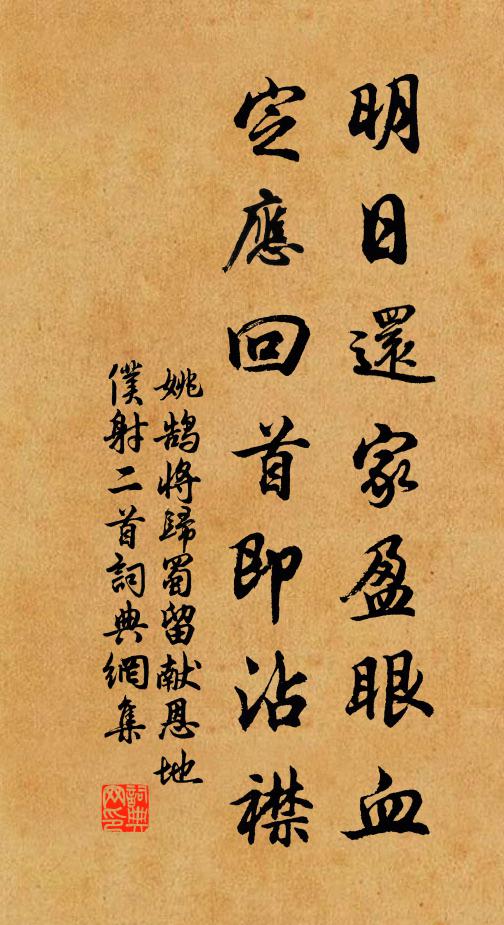 明日還家盈眼血
定應回首即沾襟
姚鵠将歸蜀留献恩地
僕射二首詞典網集